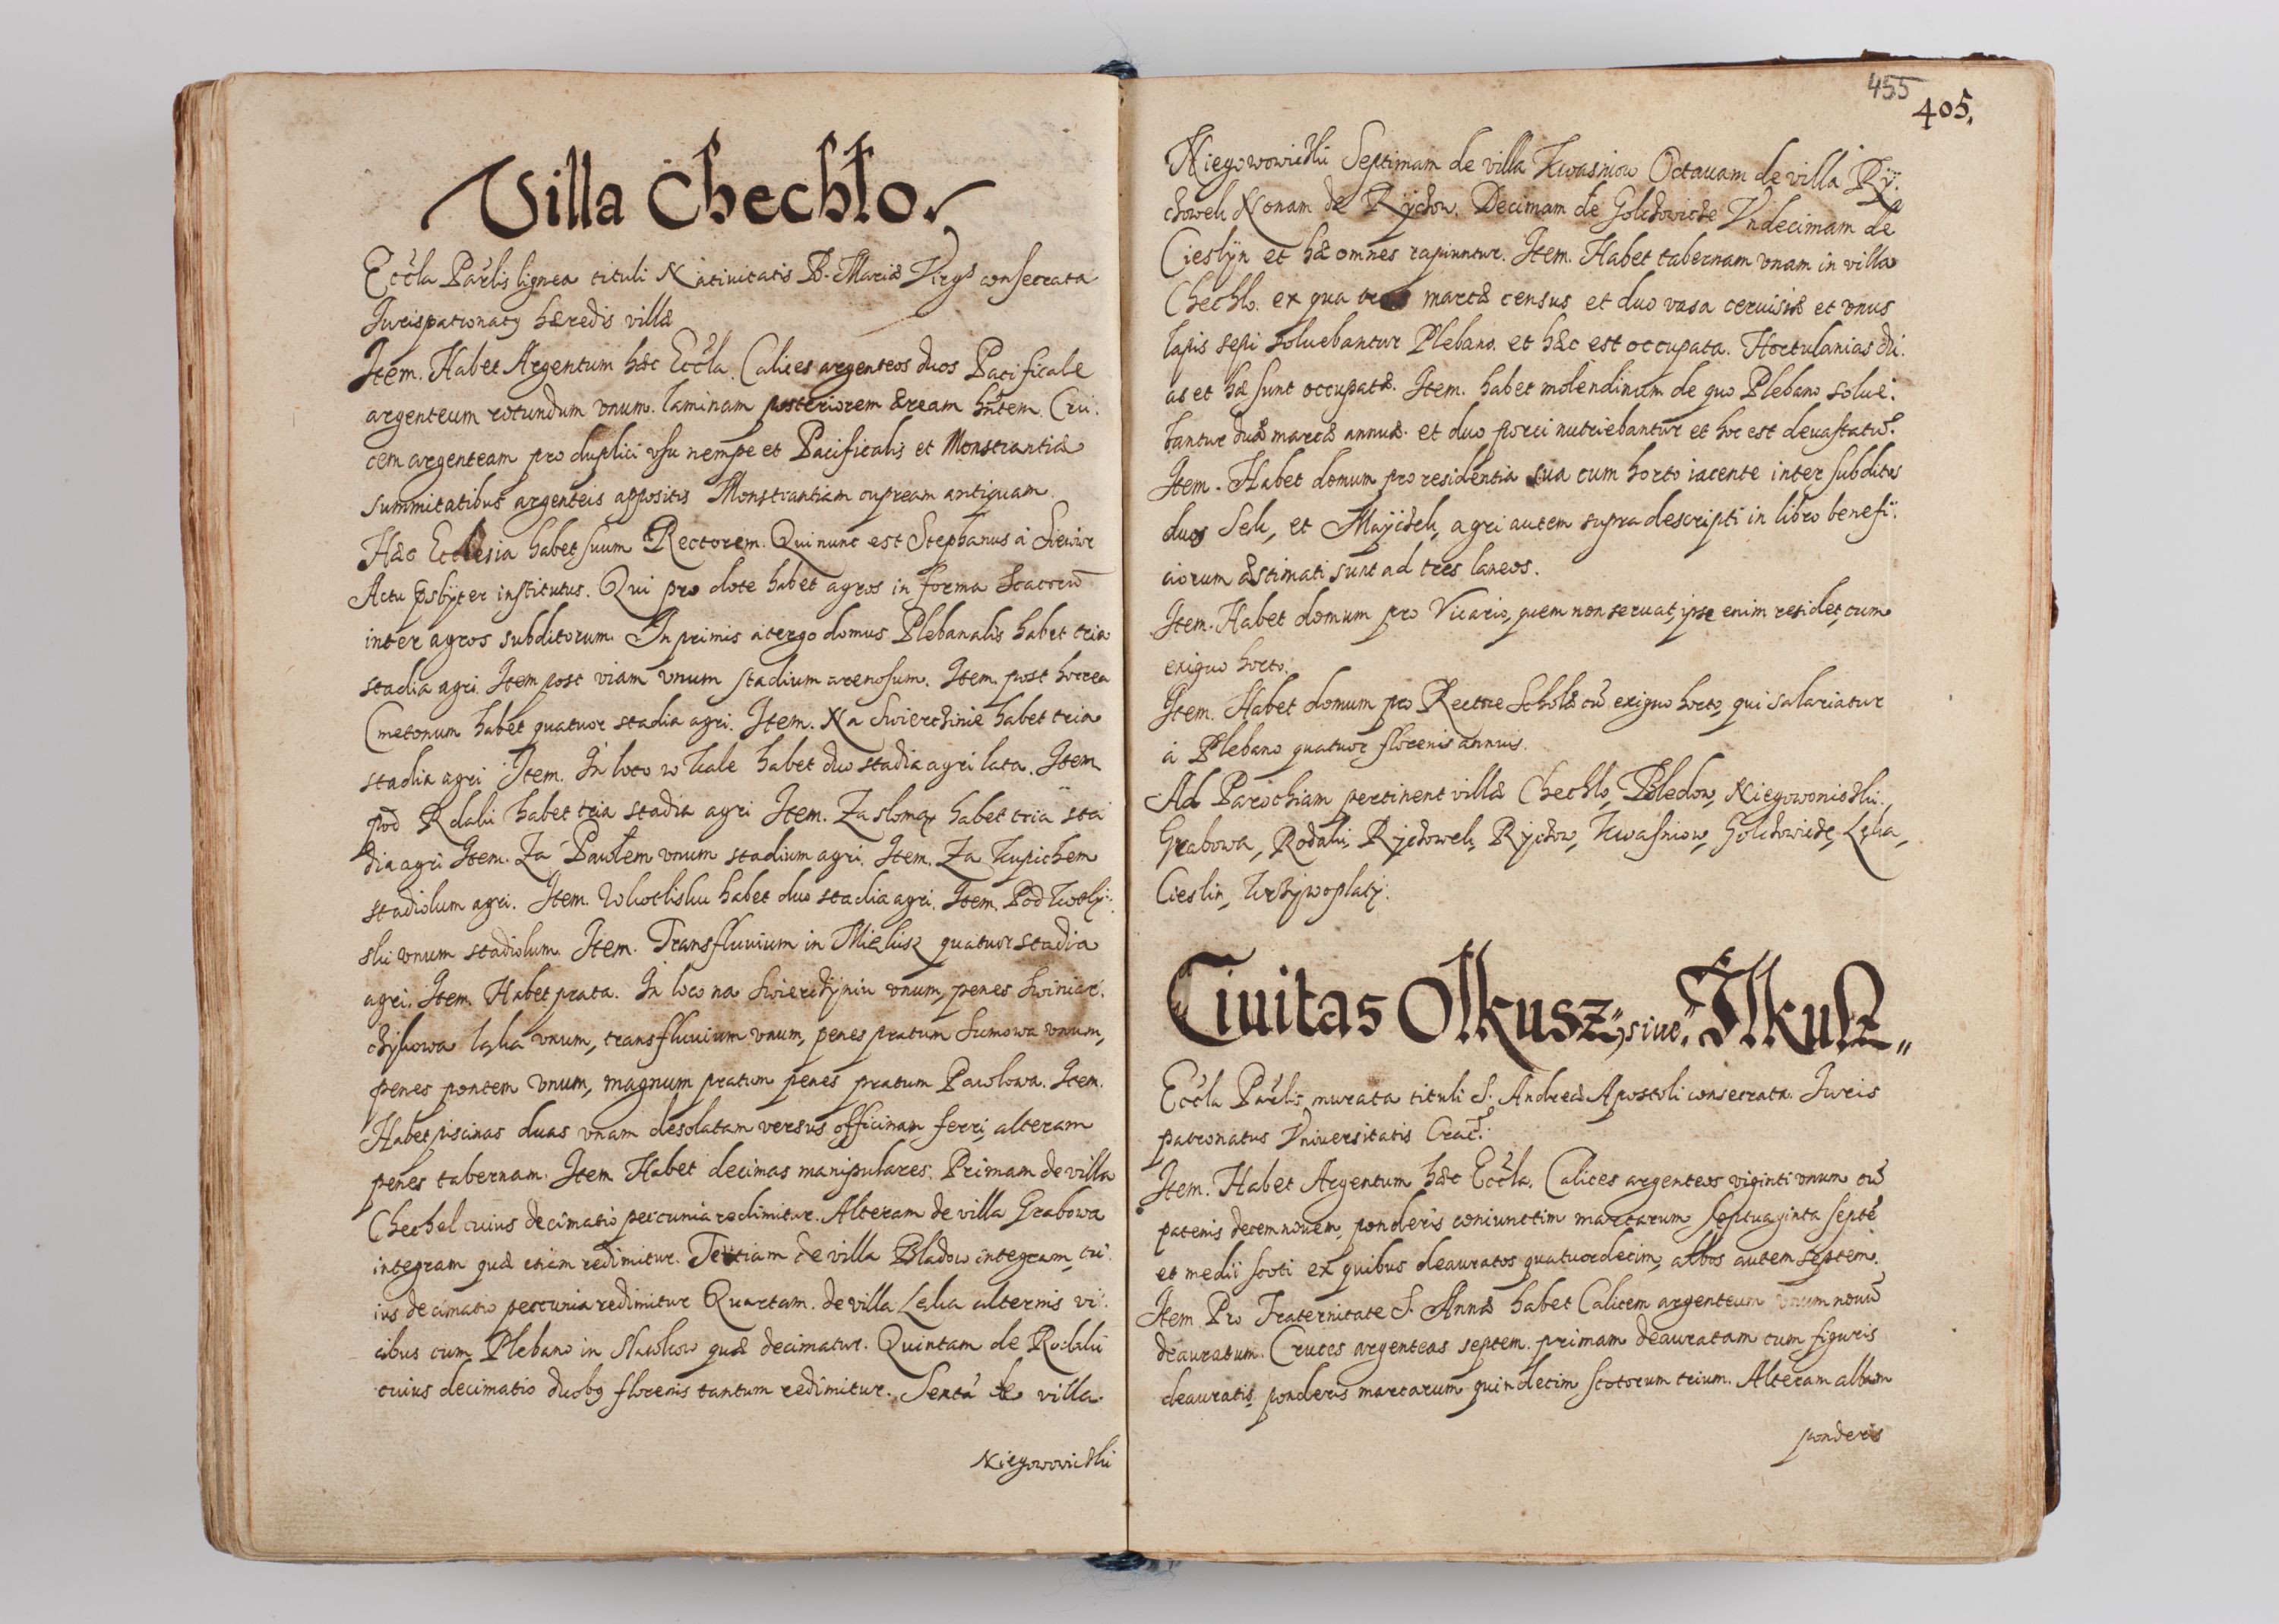 Villa Chechło
Eccła Parlis lignea tituli Natiuitatis B. Mariæ Virgs consecrata
Jurispatronatq hæredis villæ
Item. Habet Argentum hæc Eccla. Calices argenteos duos Pacificale
argenteum rotundum vnum. laminam posteriorem æream hntem. Cru:
cem argenteam pro duplici vsu nempe et Pacificalis et Monstrantiæ
summitatibus argenteis appositis Monstrantiam cupream antiquam.
Hæc Ecclesia habet suum Rectorem. Qui nunc est Stephanus à Siewior
Actu Psbÿter institutus. Qui pro dote habet agros in forma scacorū
inter agros subditorum. In primis à tergo domus Plebanalis habet tria
stadia agri. Item post viam vnum stadium arenosum. Item post horrea
Cmetonum habet quatuor stadia agri. Item. Na Swierczinie habet tria
stadia agri Item. In loco w kale habet duo stadia agri lata. Item
pod Rdalii habet tria stadia agri Item. Za slomą habet tria sta
dia agri Item. Za Pawłem vnum stadium agri. Item. Za kupichem
stadiolum agri. Item. W kotlisku habet duo stadia agri. Item. Pod kotly:
ski vnum stadiolum. Item. Transfluuium in Mielisz quatuor stadia
agri. Item. Habet prata. In loco na Swierczÿniu vnum, penes Swiniar:
czÿkowa ląka vnum, transfluuium vnum, penes pratum Sumowa vnum,
penes pontem vnum, magnum pratum penes pratum Pawlowa. Item.
Habet piscinas duas vnam desolatam versus officinam ferri, alteram
penes tabernam. Item Habet decimas manipulares. Primam de villa
Chechel cuius decimatio pecunia redimitur. Alteram de villa Grabowa
integram quæ etiam redimitur. Tertiam de villa Bladow integram, cu:
ius decimatio pecunia redimitur Quartam. de villa Lęka alternis vi:
cibus cum Plebano in Slawkow quæ decimatur. Quintam de Rodaki
cuius decimatio duobq florenis tantum redimitur. Sextā de villa
Niegowoniczki
455
405.
Niegowowiczki Septimam de villa Kwasniow Octauam de villa Rÿ:
czowek Nonam de Rÿczow. Decimam de Golczowicze Vndecimam de
Cieslÿn et hæ omnes rapiuntur. Item. Habet tabernam vnam in villa
Chechlo. ex qua tres marcæ census et duo vasa ceruisiæ et vnus
lapis sepi soluebantur Plebano. et hæc est occupata. Hortulanias du:
as et hæ sunt occupatæ. Item. habet molendinum de quo Plebano solue:
bantur duæ marcæ annuæ. et duo porci nutriebantur et hoc est deuastatū.
Item. Habet domum pro residentia sua cum horto iacente inter subditos
duos Sek, et Maÿczek, agri autem supra descripti in libro benefi:
ciorum æstimati sunt ad tres laneos.
Item. Habet domum pro Vicario, quem non seruat, ipse enim residet, cum
exiguo horto.
Item. Habet domum pro Rectore Scholæ cū exiguo horto, qui salariatur
à Plebano quatuor florenis annuis.
Ad Parochiam pertinent villæ Chechlo, Bledow, Niegowoniczki,
Grabowa, Rodaki, Rÿczowek, Rÿczow, Kwasniow, Golczowicze, Lęka,
Cieslin, Krzÿwoplatÿ.
Ciuitas Olkusz, siue, Ilkusz
Eccla Parlis, murata tituli S. Andreæ Apostoli consecrata. Juris
patronatus Vniuersitatis Crac:
Item. Habet Argentum hæc Eccla. Calices argenteos viginti vnum cū
patenis decemnouem, ponderis coniunctim marcarum septuaginta septē
et medii scoti ex quibus deauratos quatuordecim, albos autem septem.
Item Pro Fraternitate S. Annæ habet Calicem argenteum vnum nouū
deauratum. Cruces argenteas septem. primam deauratam cum figuris
deauratis, ponderis marcarum quindecim scotorum trium. Alteram albam
ponderis